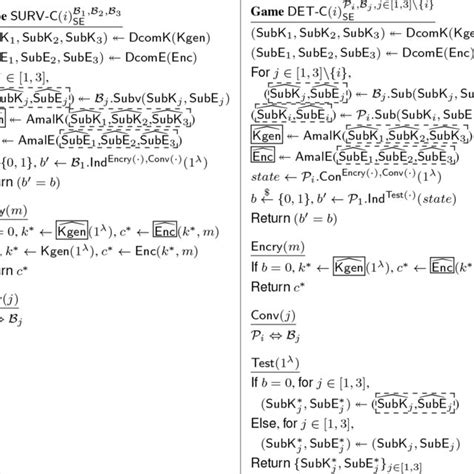 e SURV-C(i)_SE^{B_1,B_2,B_3}
ubK_1, SubK_2, SubK_3) ↞ DcomK(Kgen)
ubE_1, SubE_2, SubE_3) ↞ DcomE(Enc)
∈ [1,3],
SubK_j, SubE_j) ↞ B_j.Subv(SubK_j, SubE_j)
← AmalK(SubK_1, SubK_2, SubK_3)
← AmalE(SubE_1, SubE_2, SubE_3)
{0,1}, b′ ← B_1.Ind^{Encry(·),Conv(·)}(1^λ)
urn (b′ = b)
y(m)
= 0, k* ← Kgen(1^λ), c* ← Enc(k*, m)
k* ← Kgen(1^λ), c* ← Enc(k*, m)
rn c*
(j)
⇔ B_j
Game DET-C(i)_SE^{P_i,B_j,j∈[1,3]\{i}}
(SubK_1, SubK_2, SubK_3) ↞ DcomK(Kgen)
(SubE_1, SubE_2, SubE_3) ↞ DcomE(Enc)
For j ∈ [1,3]\{i},
(SubK_j, SubE_j) ↞ B_j.Sub(SubK_j, Su
(SubK_i, SubE_i) ↞ P_i.Sub(SubK_i, SubE
Kgen ← AmalK(SubK_1, SubK_2, SubK_3)
Enc ← AmalE(SubE_1, SubE_2, SubE_3)
state ← P_i.Con^{Encry(·),Conv(·)}(1^λ)
b ←$ {0,1}, b′ ← P_1.Ind^{Test(·)}(state)
Return (b′ = b)
Encry(m)
If b = 0, k* ← Kgen(1^λ), c* ← Enc(k*
Return c*
Conv(j)
P_i ⇔ B_j
Test(1^λ)
If b = 0, for j ∈ [1,3],
(SubK*_j, SubE*_j) ↞ (SubK_j, SubE_j)
Else, for j ∈ [1,3],
(SubK*_j, SubE*_j) ↞ (SubK_j, SubE_j)
Return {SubK*_j, SubE*_j}_{j∈[1,3]}